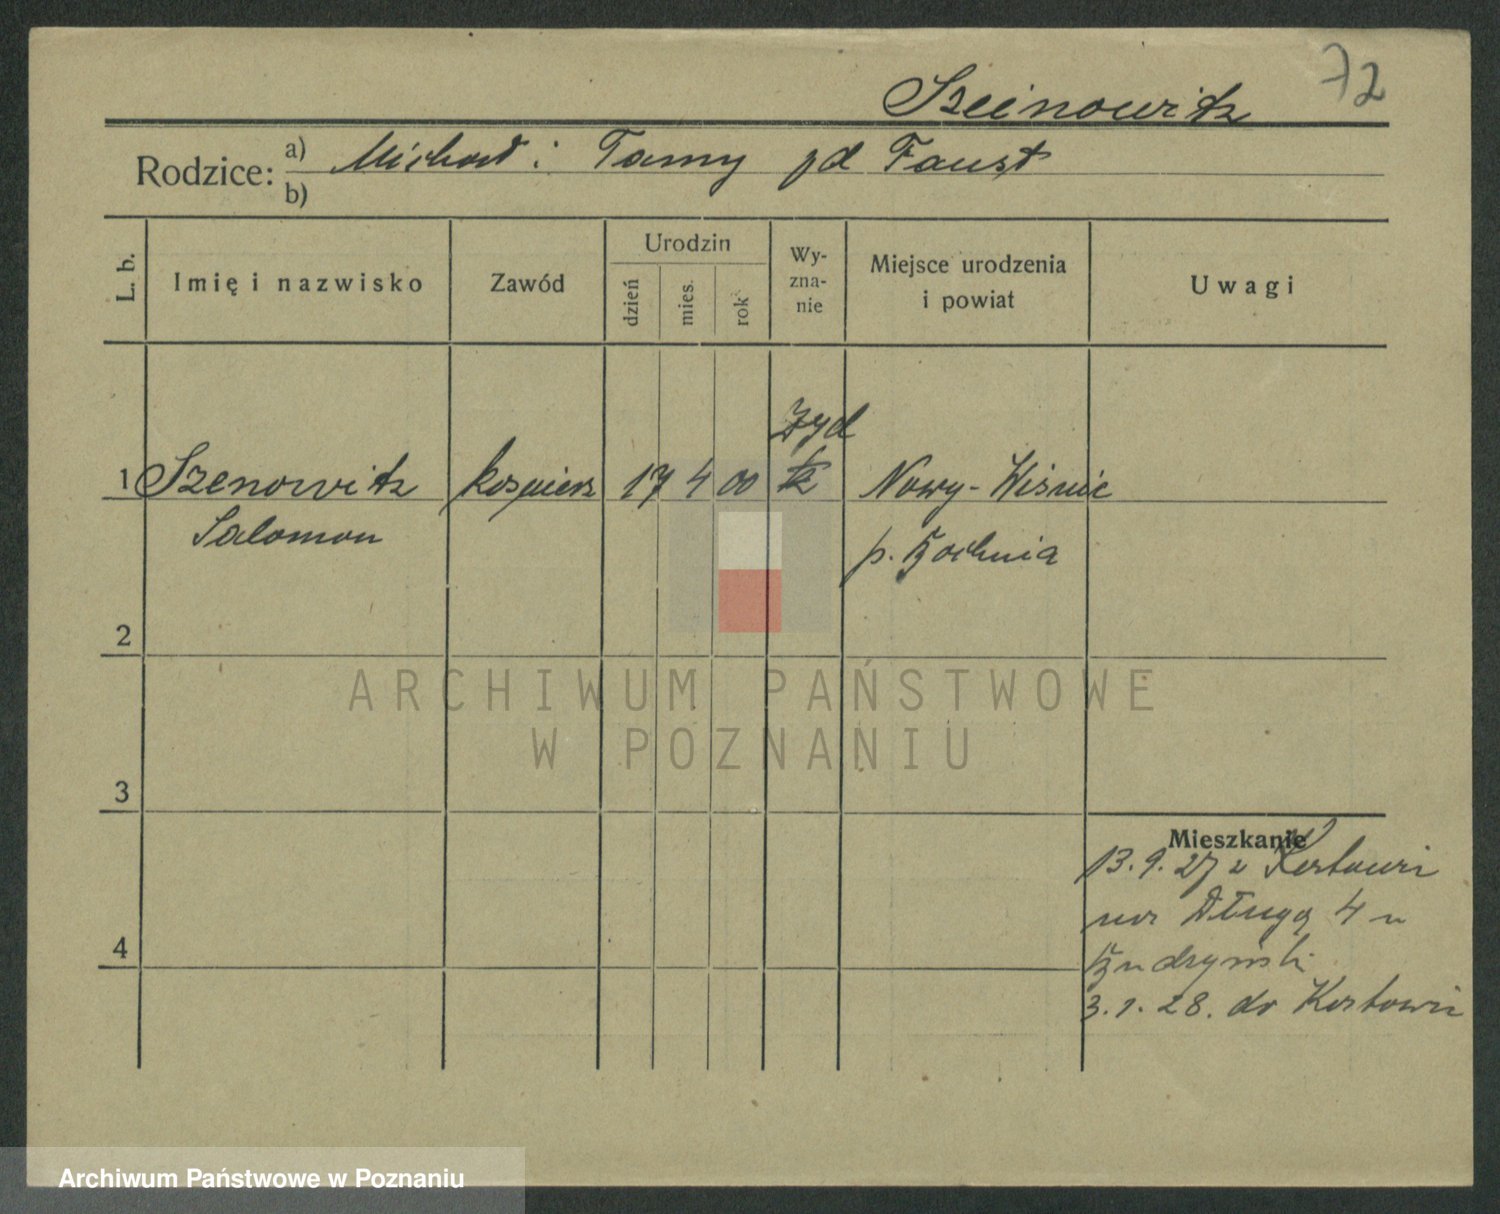 72
Szeinowitz
Rodzice: a) Michał i Tamy zd Faust
b)
L. b. Imię i nazwisko Zawód Urodzin dzień mies. rok Wy-zna-nie Miejsce urodzenia i powiat Uwagi
Żyd
1 Szenowitz 17 4 00 Nowy-Wiśnic
Salomon p. Bochnia
2
ARCHIWUM PAŃSTWOWE
W POZNANIU
3
Mieszkanie
13.9.27 z
Długa 4 u
4
3.1.28. do
Archiwum Państwowe w Poznaniu